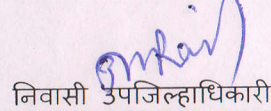 निवासी उपजिल्हाधिकारी